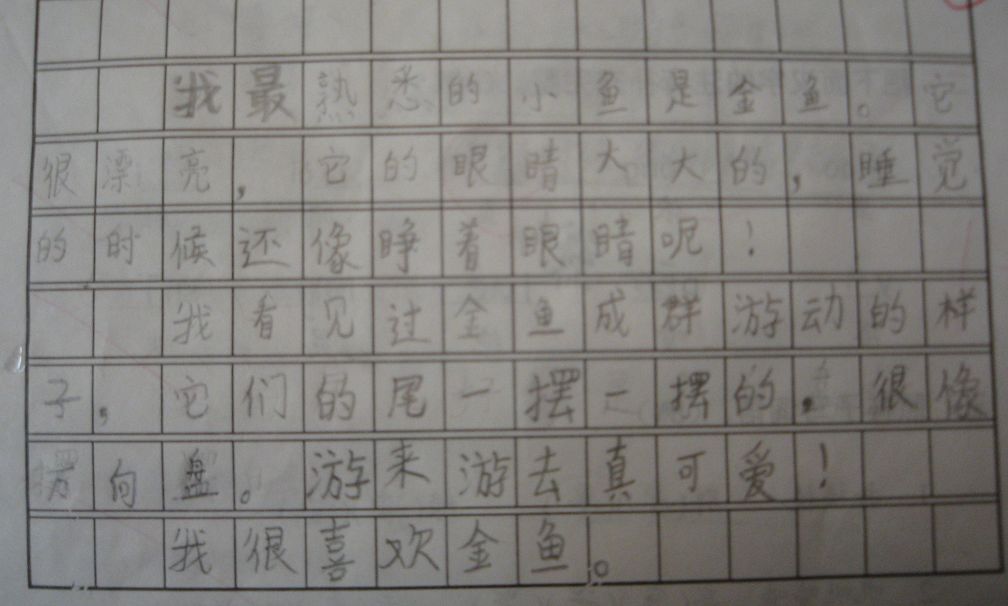 我最熟悉的小鱼是金鱼。它
很漂亮，它的眼睛大大的，睡觉
的时候还像睁着眼睛呢！
我看见过金鱼成群游动的样
子，它们的尾一摆一摆的，很像
方向盘。游来游去真可爱！
我很喜欢金鱼。